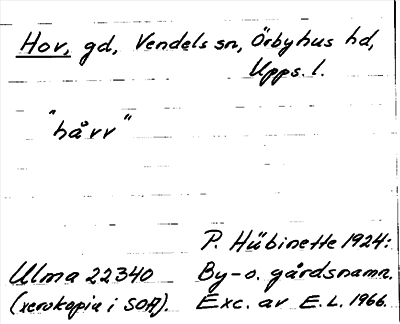 Hov, gd, Vendels sn, Örbyhus hd,
Upps. l.
"hårr"
P. Hübinette 1924:
Ulma 22340 By- o. gårdsnamn.
(xerokopia i SOA). Exc. av E. L. 1966.